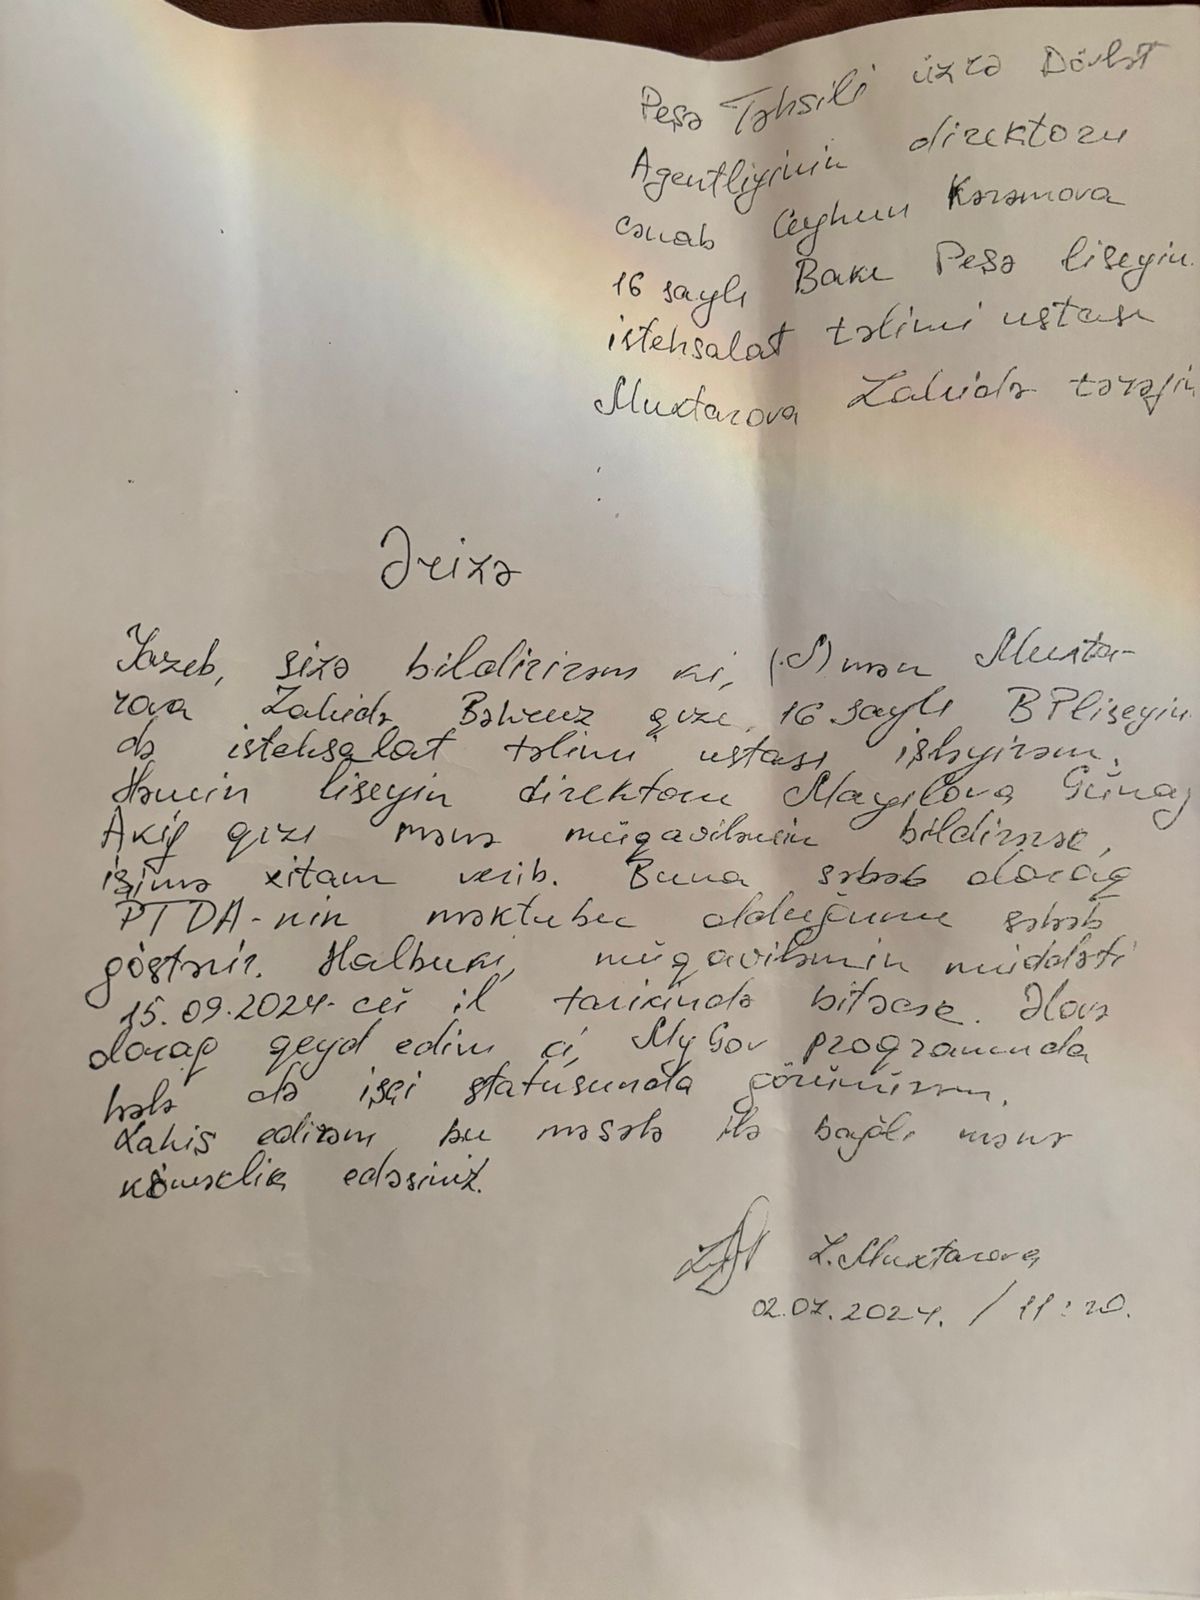 Peşə Təhsili üzrə Dövlət
Agentliyinin direktoru
cənab Ceyhun Kərəmova
16 saylı Bakı Peşə liseyin
istehsalat təlimi ustası
Muxtarova Zahidə tərəfin
Ərizə
Yazıb, sizə bildirirəm ki, mən Muxta-
rova Zahidə Bəhruz qızı, 16 saylı BPliseyin
də istehsalat təlimi ustası işləyirəm.
Həmin liseyin direktoru Mayılova Günay
Akif qızı mənə müqavilənin bildirərək,
işimə xitam verib. Buna səbəb olaraq
PTDA-nin məktubu olduğunu səbəb
göstərir. Halbuki, müqaviləmin müddəti
15.09.2024-cü il tarixində bitəcək. Əlavə
olaraq qeyd edim ki, MyGov proqramında
hələ də işçi statusunda görünürəm.
Xahiş edirəm bu məsələ ilə bağlı mənə
köməklik edəsiniz.
Z.Muxtarova
02.07.2024. / 11:20.